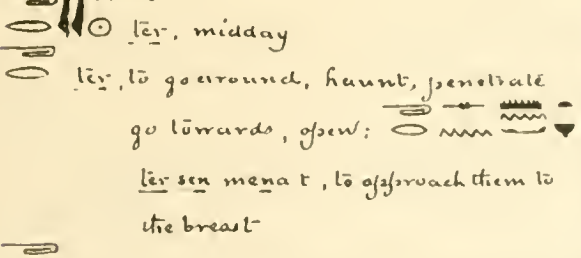 ter, midday
ter, to go around, haunt, penetrate
go towards, open:
ter sen mena t, to approach them to
the breast